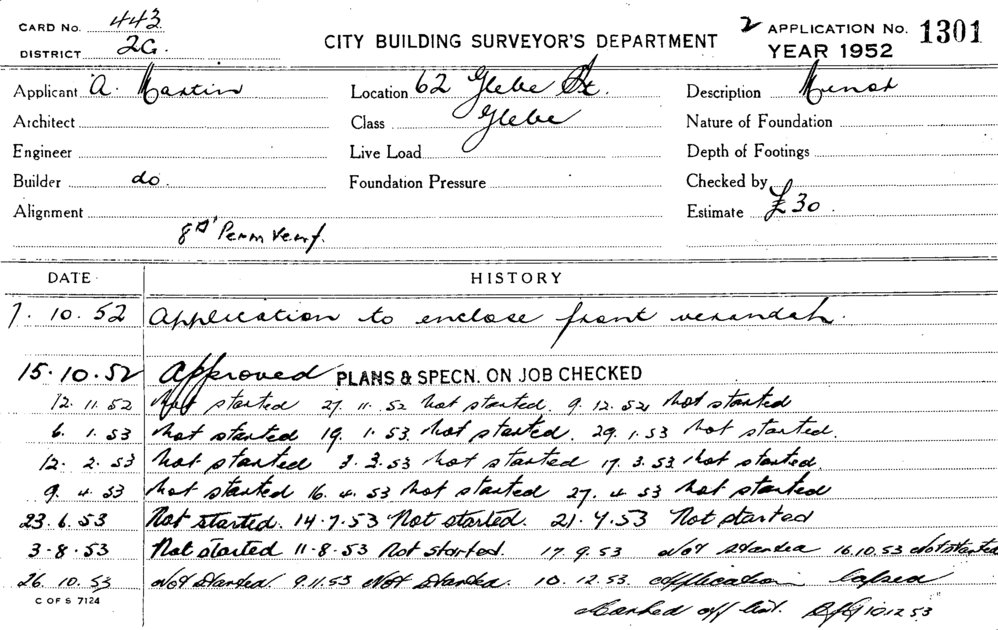 CARD No. 443
DISTRICT 2G.
CITY BUILDING SURVEYOR'S DEPARTMENT
2 APPLICATION No. 1301
YEAR 1952
Applicant A. Martin Location 62 Glebe St. Description
Architect Class Glebe Nature of Foundation
Engineer Live Load Depth of Footings
Builder do. Foundation Pressure Checked by
Alignment Estimate £30
DATE HISTORY
7. 10. 52 Application to enclose front verandah.
15.10.52 Approved PLANS & SPECN. ON JOB CHECKED
12. 11. 52 Not started 27. 11. 52 Not started. 9. 12. 52 Not started
6. 1. 53 Not started 19. 1. 53. Not started. 29. 1. 53 Not started.
12. 2. 53 Not started 3. 3. 53 Not started 17. 3. 53 Not started
9. 4. 53 Not started 16. 4. 53 Not started 27. 4 53 Not started
23. 6. 53 Not started. 14-7.53 Not started. 21.7.53 Not started
3-8.53 Not started 11-8.53 Not started. 17.9.53 Not started 16.10.53 Not started
26. 10. 53 Not Started. 9.11.53 Not Started. 10. 12. 53. application lapsed
Marked off list. 10.12.53
C OF S 7124